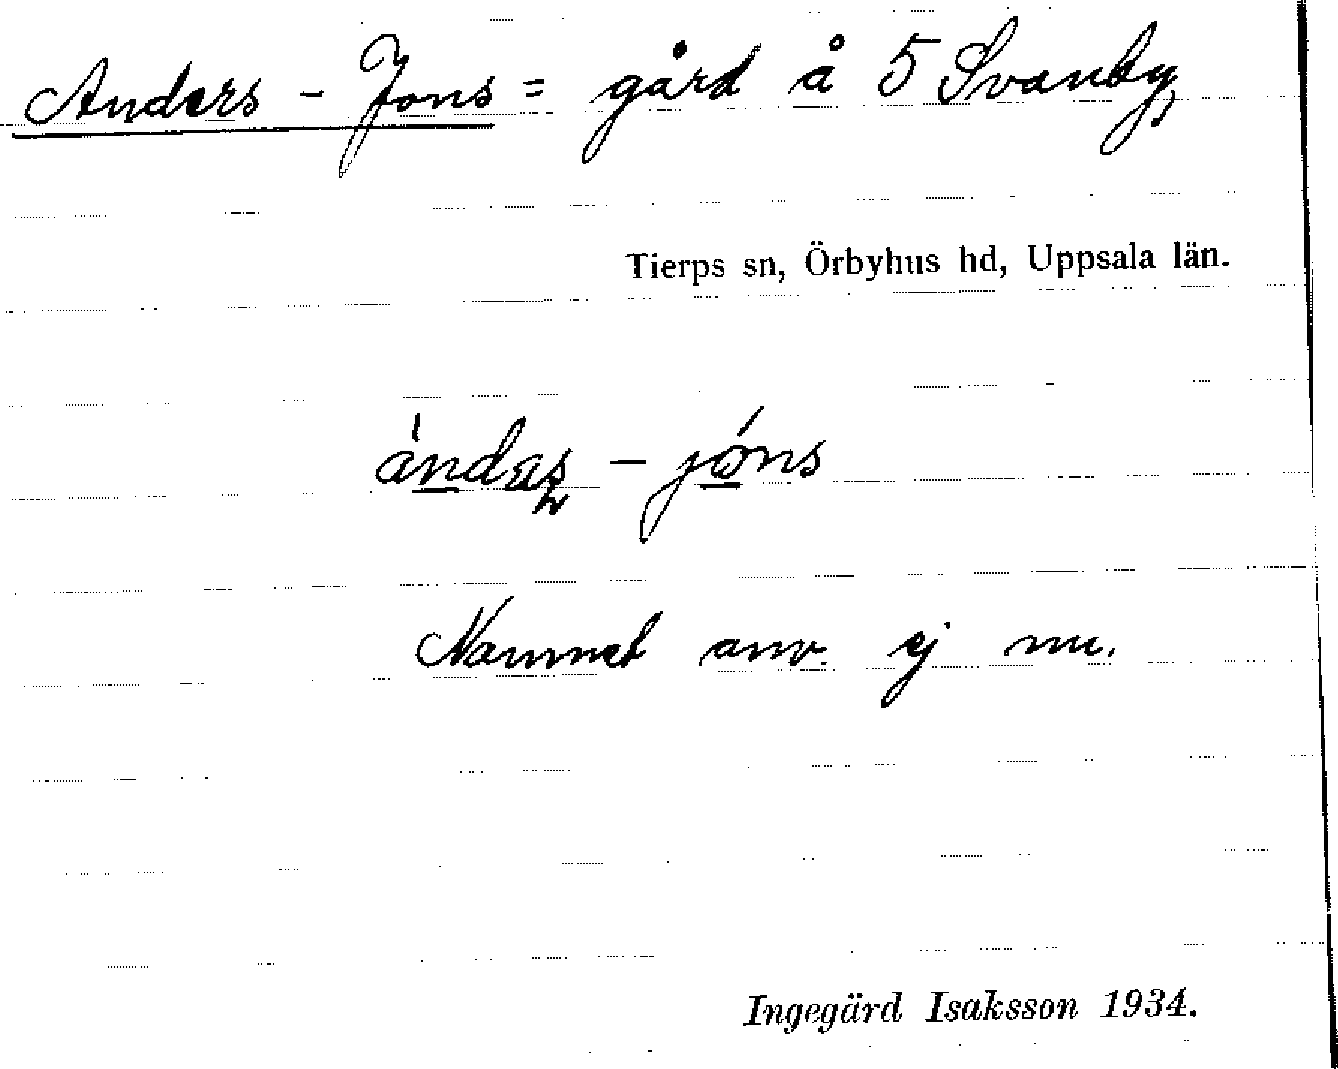 Anders - Jons = gård å 5 Svanby,
Tierps sn, Örbyhus hd, Uppsala län.
ándas - jóns
Namnet anv. ej nu.
Ingegärd Isaksson 1934.